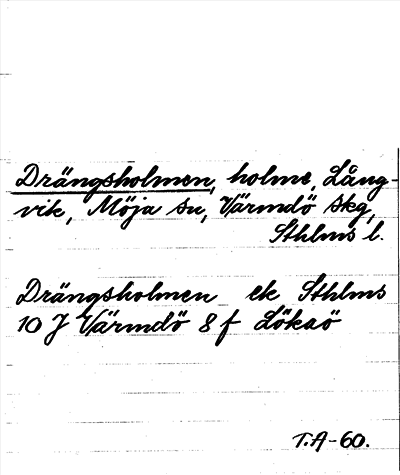 Drängsholmen, holme, Lång-
vik, Möja sn, Värmdö skg,
Sthlms l.
Drängsholmen ek Sthlms
10 J Värmdö 8 f Lökaö
T.A-60.